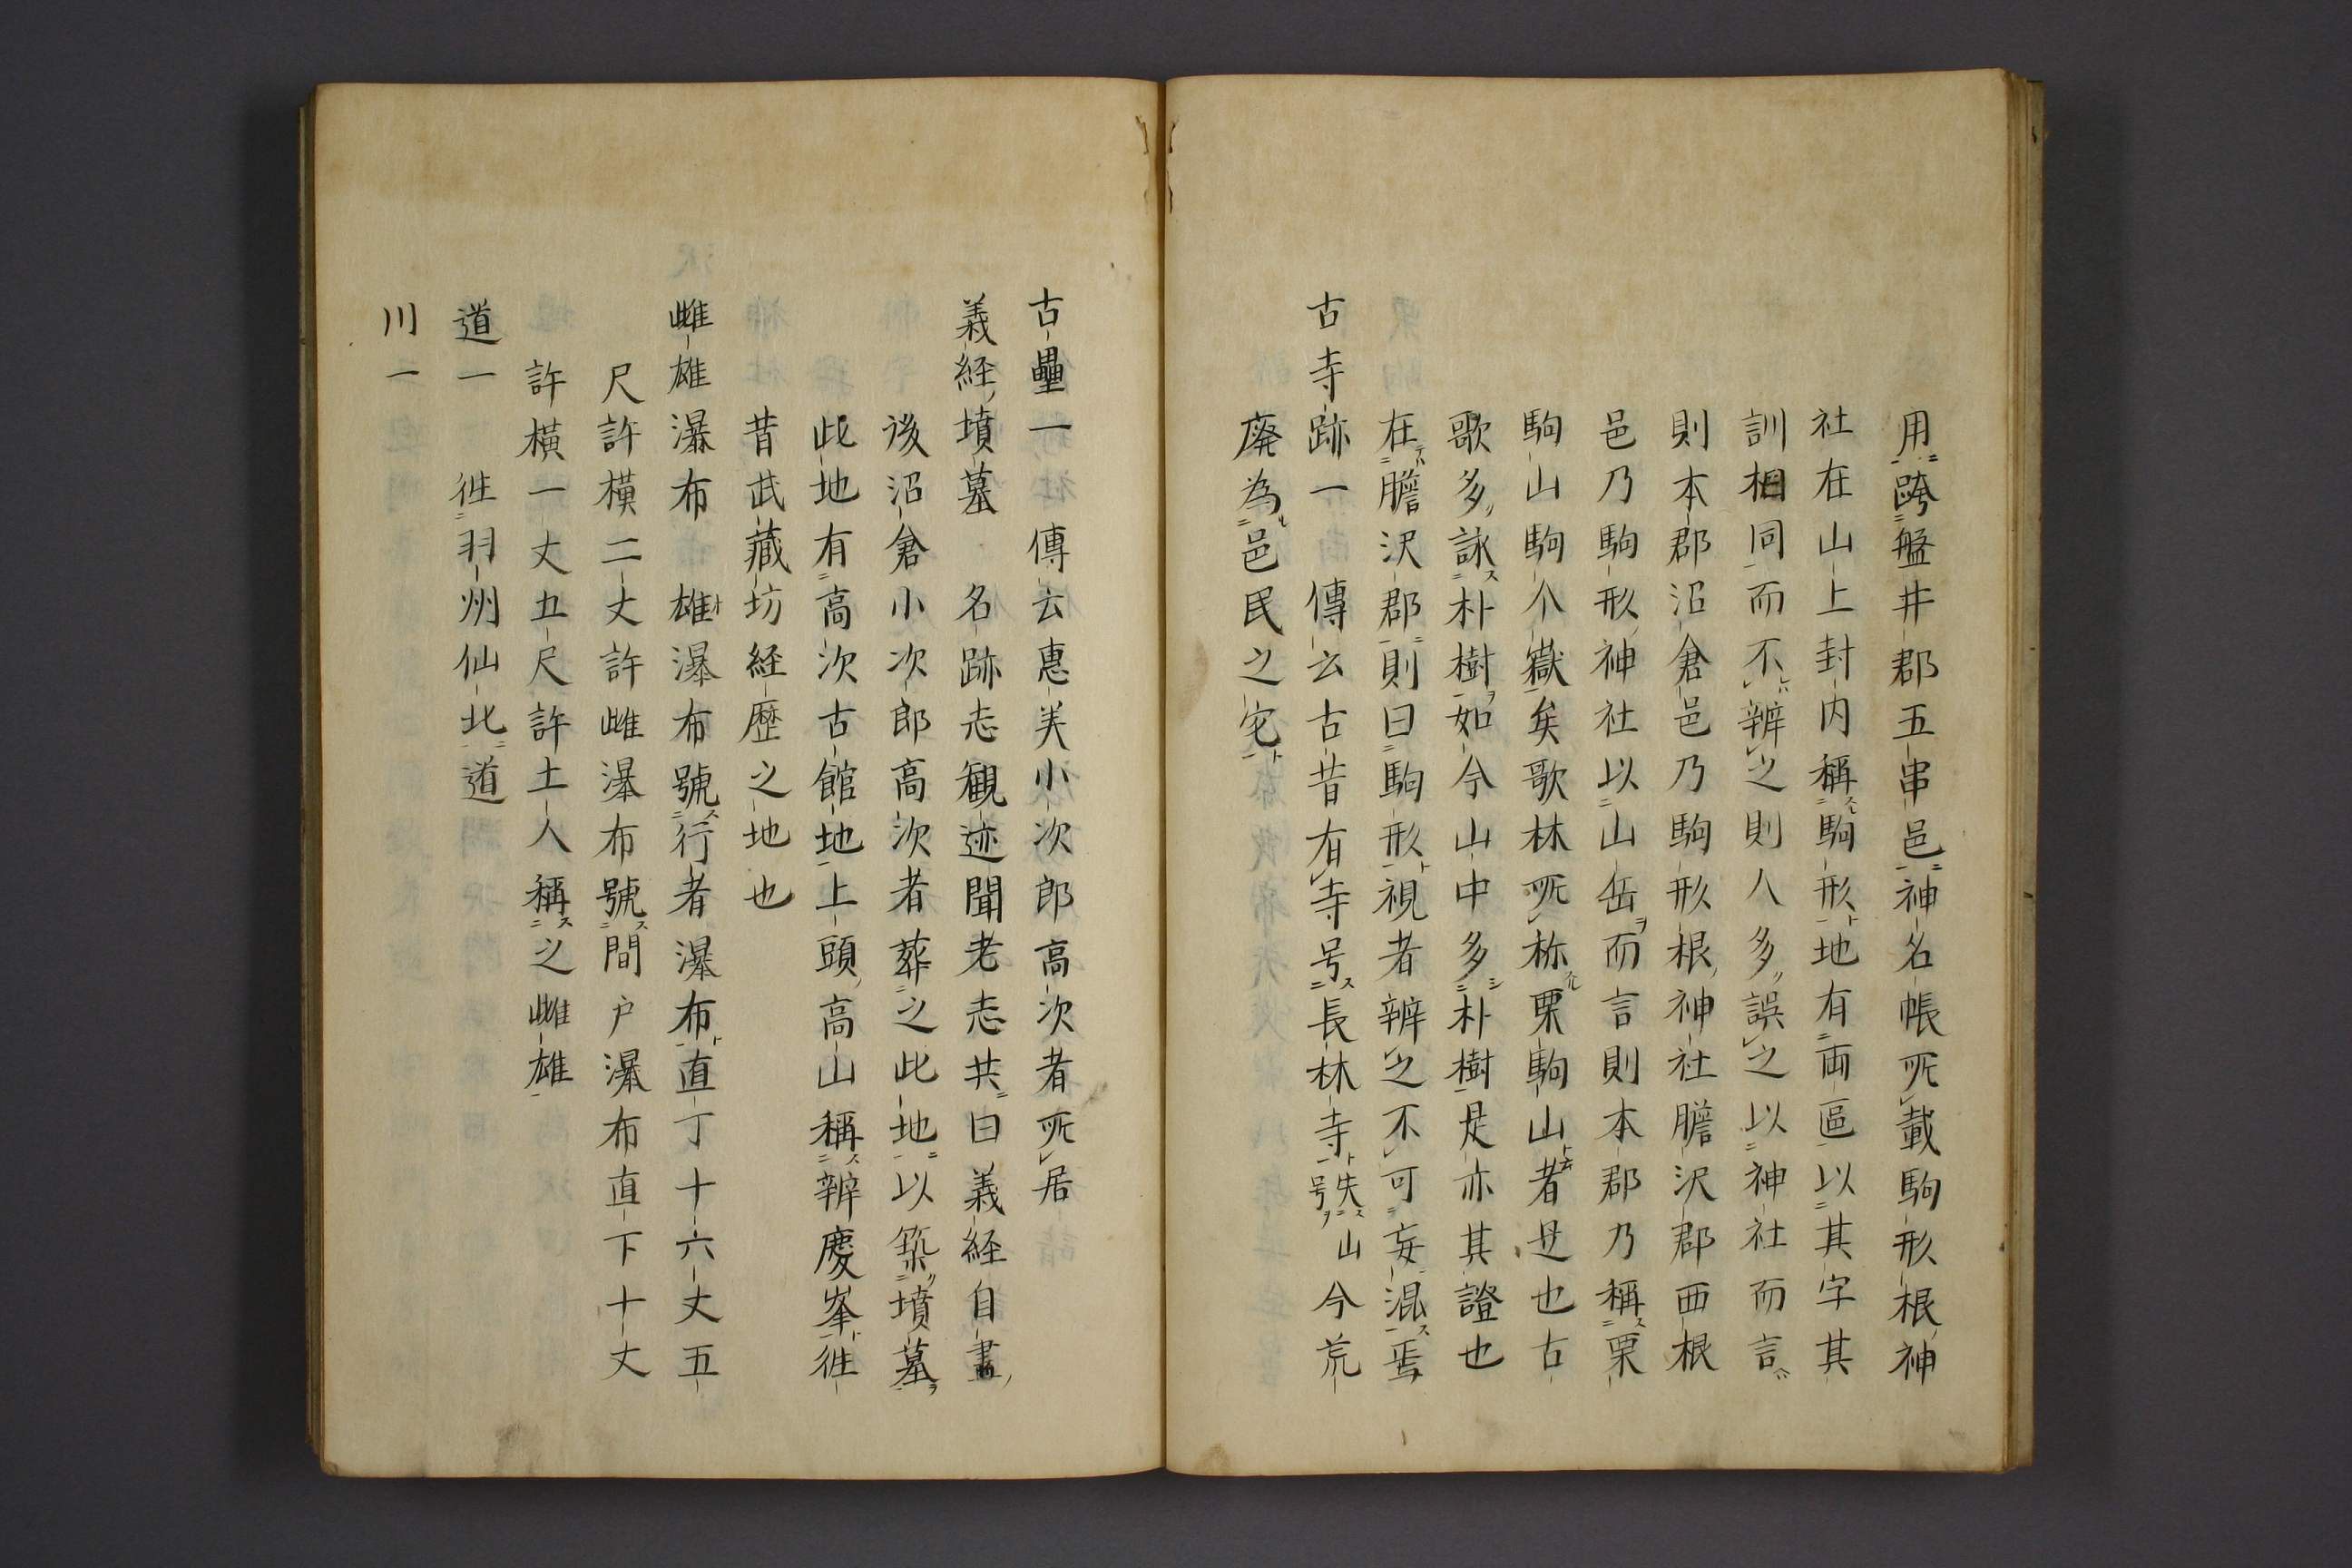 用跨盤井郡五串邑神名帳所載駒形根神
社在山上封内稱駒形地有両區以其字其
訓相同而不辨之則人多誤之以神社而言
則本郡沼倉邑乃駒形根神社膽沢郡西根
邑乃駒形神社以山岳而言則本郡乃稱栗
駒山駒个嶽矣歌林所称栗駒山者是也古
歌多詠朴樹如今山中多朴樹是亦其證也
在膽沢郡則曰駒形視者辨之不可妄混焉
古寺跡一 傳云古昔有寺号長林寺失山号今荒
廃為邑民之宅
古壘一 傳云惠美小次郎高次者所居
義経墳墓 名跡志観迹聞老志共曰義経自盡
後沼倉小次郎高次者葬之此地以築墳墓
此地有高次古館地上頭高山稱辨慶峯徃
昔武藏坊経歴之地也
雌雄瀑布 雄瀑布號行者瀑布直丁十六丈五
尺許横二丈許雌瀑布號間戸瀑布直下十丈
許横一丈五尺許土人稱之雌雄
道一 徃羽州仙北道
川一